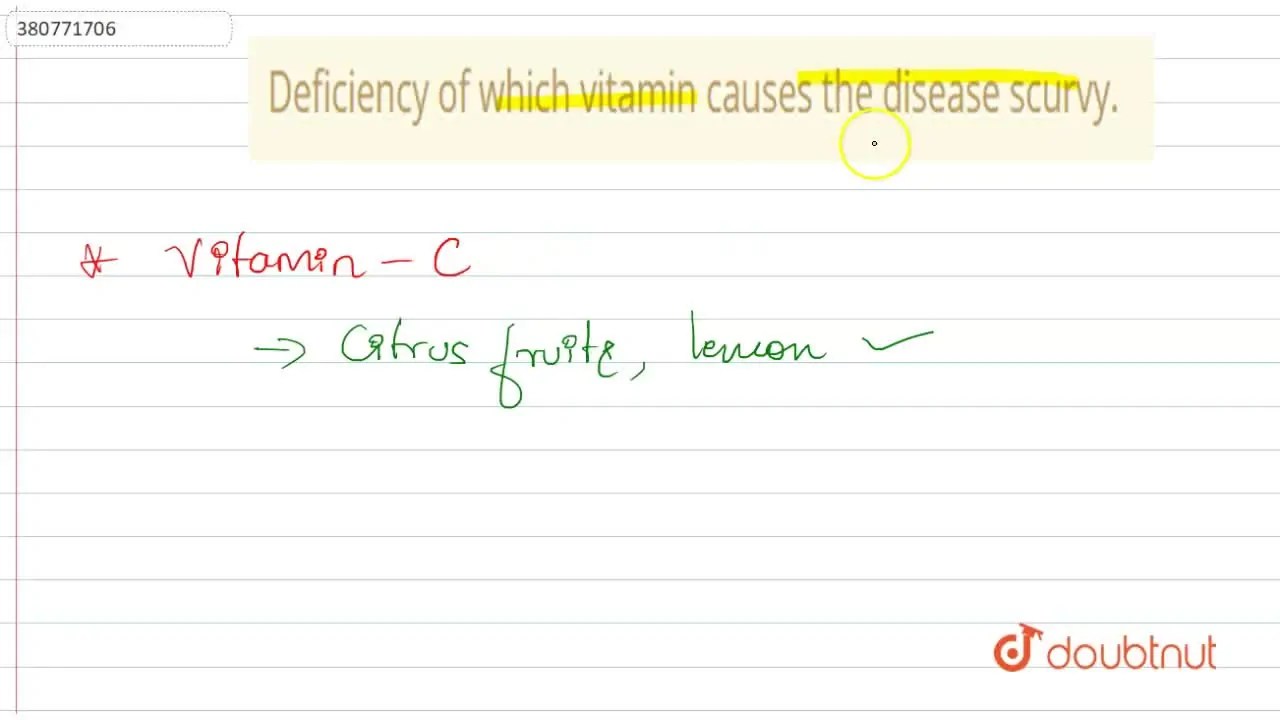 380771706
Deficiency of which vitamin causes the disease scurvy.
* Vitamin - C
→ Citrus fruits, lemon ✓
doubtnut